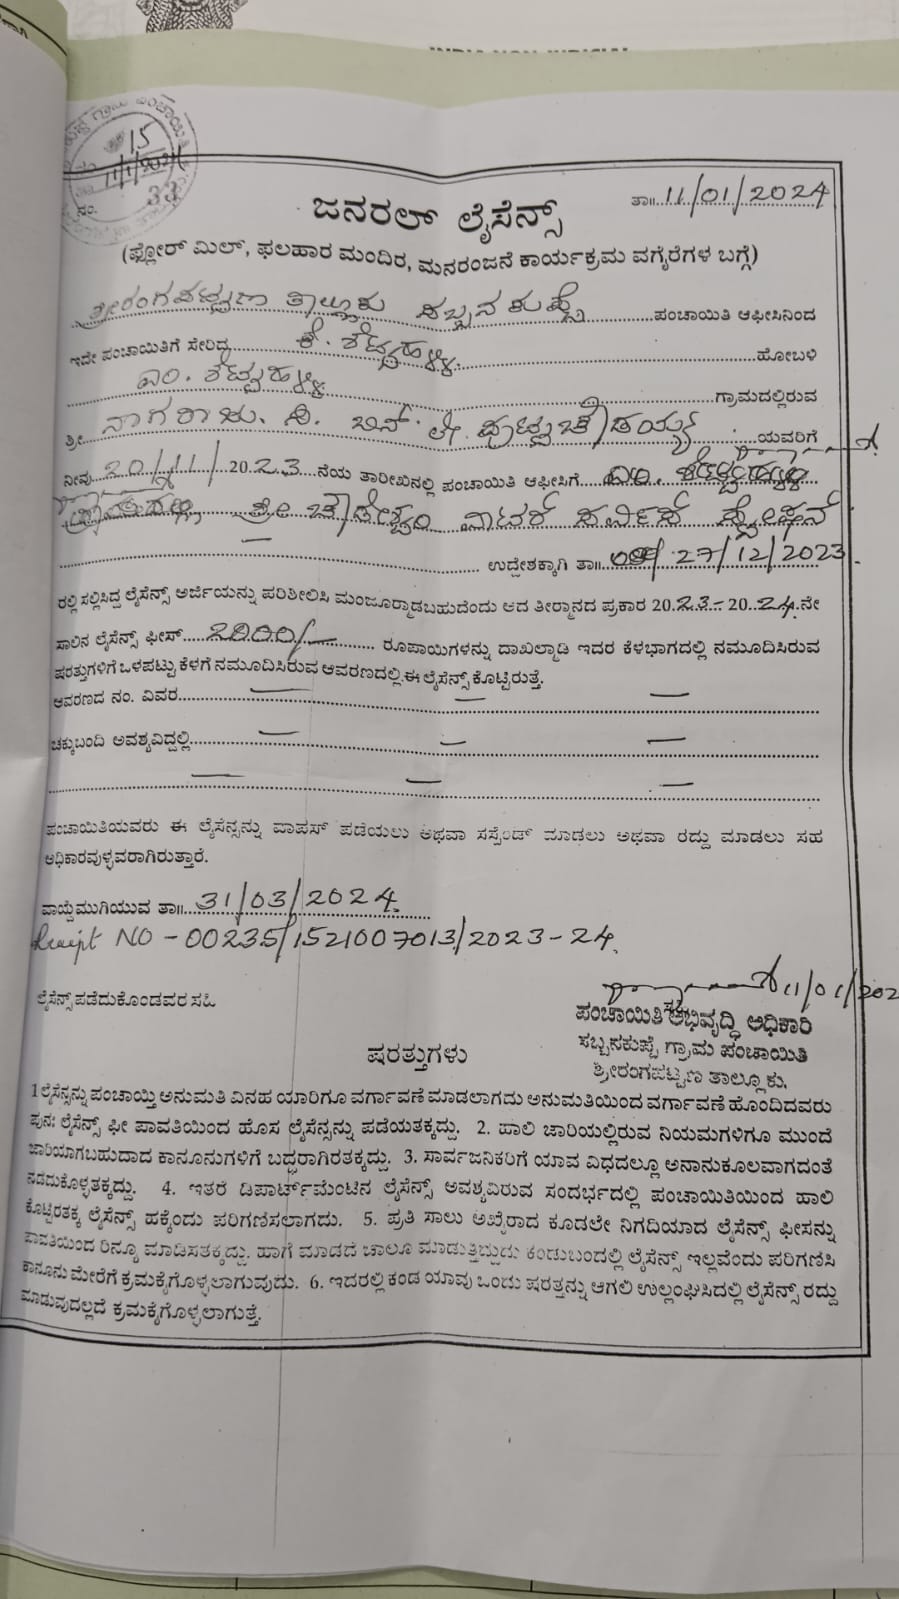 INDIA NON JUDICIAL
15
11/1/2024
ನಂ. 33
ಜನರಲ್ ಲೈಸೆನ್ಸ್
ತಾ॥ 11/01/2024
(ಫ್ಲೋರ್ ಮಿಲ್, ಫಲಹಾರ ಮಂದಿರ, ಮನರಂಜನೆ ಕಾರ್ಯಕ್ರಮ ವಗೈರೆಗಳ ಬಗ್ಗೆ)
ಶ್ರೀರಂಗಪಟ್ಟಣ ತಾಲ್ಲೂಕು ಸಬ್ಬನಕುಪ್ಪೆ ಪಂಚಾಯಿತಿ ಆಫೀಸಿನಿಂದ
ಇದೇ ಪಂಚಾಯಿತಿಗೆ ಸೇರಿದ ಕೆ. ಶೆಟ್ಟಹಳ್ಳಿ ಹೋಬಳಿ
ಎಂ. ಶೆಟ್ಟಹಳ್ಳಿ ಗ್ರಾಮದಲ್ಲಿರುವ
ಶ್ರೀ ನಾಗರಾಜು. ಪಿ. ಬಿನ್ ಲೇ. ಪುಟ್ಟಚೌಡಯ್ಯ ಯವರಿಗೆ
ನೀವು 20/11/2023 ನೆಯ ತಾರೀಖಿನಲ್ಲಿ ಪಂಚಾಯಿತಿ ಆಫೀಸಿಗೆ ಎಂ. ಶೆಟ್ಟಹಳ್ಳಿ
ಶ್ರೀ ಚೌಡೇಶ್ವರಿ ವಾಟರ್ ಸರ್ವಿಸ್ ಸ್ಟೇಷನ್
ಉದ್ದೇಶಕ್ಕಾಗಿ ತಾ॥ 27/12/2023
ರಲ್ಲಿ ಸಲ್ಲಿಸಿದ್ದ ಲೈಸೆನ್ಸ್ ಅರ್ಜಿಯನ್ನು ಪರಿಶೀಲಿಸಿ ಮಂಜೂರ್ಮಾಡಬಹುದೆಂದು ಆದ ತೀರ್ಮಾನದ ಪ್ರಕಾರ 2023-2024ನೇ
ಸಾಲಿನ ಲೈಸೆನ್ಸ್ ಫೀಸ್ 2000/- ರೂಪಾಯಿಗಳನ್ನು ದಾಖಲ್ಮಾಡಿ ಇದರ ಕೆಳಭಾಗದಲ್ಲಿ ನಮೂದಿಸಿರುವ
ಷರತ್ತುಗಳಿಗೆ ಒಳಪಟ್ಟು ಕೆಳಗೆ ನಮೂದಿಸಿರುವ ಆವರಣದಲ್ಲಿ ಈ ಲೈಸೆನ್ಸ್ ಕೊಟ್ಟಿರುತ್ತೆ.
ಆವರಣದ ನಂ. ವಿವರ
ಚಕ್ಕುಬಂದಿ ಅವಶ್ಯವಿದ್ದಲ್ಲಿ
ಪಂಚಾಯಿತಿಯವರು ಈ ಲೈಸೆನ್ಸನ್ನು ವಾಪಸ್ ಪಡೆಯಲು ಅಥವಾ ಸಸ್ಪೆಂಡ್ ಮಾಡಲು ಅಥವಾ ರದ್ದು ಮಾಡಲು ಸಹ
ಅಧಿಕಾರವುಳ್ಳವರಾಗಿರುತ್ತಾರೆ.
ವಾಯ್ದೆಮುಗಿಯುವ ತಾ॥ 31/03/2024
Receipt NO - 00235/1521007013/2023-24
11/01/202
ಲೈಸೆನ್ಸ್ ಪಡೆದುಕೊಂಡವರ ಸಹಿ
ಪಂಚಾಯಿತಿ ಅಭಿವೃದ್ಧಿ ಅಧಿಕಾರಿ
ಸಬ್ಬನಕುಪ್ಪೆ ಗ್ರಾಮ ಪಂಚಾಯಿತಿ
ಶ್ರೀರಂಗಪಟ್ಟಣ ತಾಲ್ಲೂಕು.
ಷರತ್ತುಗಳು
1 ಲೈಸೆನ್ಸನ್ನು ಪಂಚಾಯ್ತಿ ಅನುಮತಿ ವಿನಹ ಯಾರಿಗೂ ವರ್ಗಾವಣೆ ಮಾಡಲಾಗದು ಅನುಮತಿಯಿಂದ ವರ್ಗಾವಣೆ ಹೊಂದಿದವರು
ಪುನಃ ಲೈಸೆನ್ಸ್ ಫೀ ಪಾವತಿಯಿಂದ ಹೊಸ ಲೈಸೆನ್ಸನ್ನು ಪಡೆಯತಕ್ಕದ್ದು. 2. ಹಾಲಿ ಜಾರಿಯಲ್ಲಿರುವ ನಿಯಮಗಳಿಗೂ ಮುಂದೆ
ಜಾರಿಯಾಗಬಹುದಾದ ಕಾನೂನುಗಳಿಗೆ ಬದ್ಧರಾಗಿರತಕ್ಕದ್ದು. 3. ಸಾರ್ವಜನಿಕರಿಗೆ ಯಾವ ವಿಧದಲ್ಲೂ ಅನಾನುಕೂಲವಾಗದಂತೆ
ನಡೆದುಕೊಳ್ಳತಕ್ಕದ್ದು. 4. ಇತರೆ ಡಿಪಾರ್ಟ್‌ಮೆಂಟಿನ ಲೈಸೆನ್ಸ್ ಅವಶ್ಯವಿರುವ ಸಂದರ್ಭದಲ್ಲಿ ಪಂಚಾಯಿತಿಯಿಂದ ಹಾಲಿ
ಕೊಟ್ಟಿರತಕ್ಕ ಲೈಸೆನ್ಸ್ ಹಕ್ಕೆಂದು ಪರಿಗಣಿಸಲಾಗದು. 5. ಪ್ರತಿ ಸಾಲು ಅಖೈರಾದ ಕೂಡಲೇ ನಿಗದಿಯಾದ ಲೈಸೆನ್ಸ್ ಫೀಸನ್ನು
ಪಾವತಿಯಿಂದ ರಿನ್ಯೂ ಮಾಡಿಸತಕ್ಕದ್ದು. ಹಾಗೆ ಮಾಡದೆ ಚಾಲೂ ಮಾಡುತ್ತಿಬ್ಬುದು ಕಂಡುಬಂದಲ್ಲಿ ಲೈಸೆನ್ಸ್ ಇಲ್ಲವೆಂದು ಪರಿಗಣಿಸಿ
ಕಾನೂನು ಮೇರೆಗೆ ಕ್ರಮಕೈಗೊಳ್ಳಲಾಗುವುದು. 6. ಇದರಲ್ಲಿ ಕಂಡ ಯಾವು ಒಂದು ಷರತ್ತನ್ನು ಆಗಲಿ ಉಲ್ಲಂಘಿಸಿದಲ್ಲಿ ಲೈಸೆನ್ಸ್ ರದ್ದು
ಮಾಡುವುದಲ್ಲದೆ ಕ್ರಮಕೈಗೊಳ್ಳಲಾಗುತ್ತೆ.